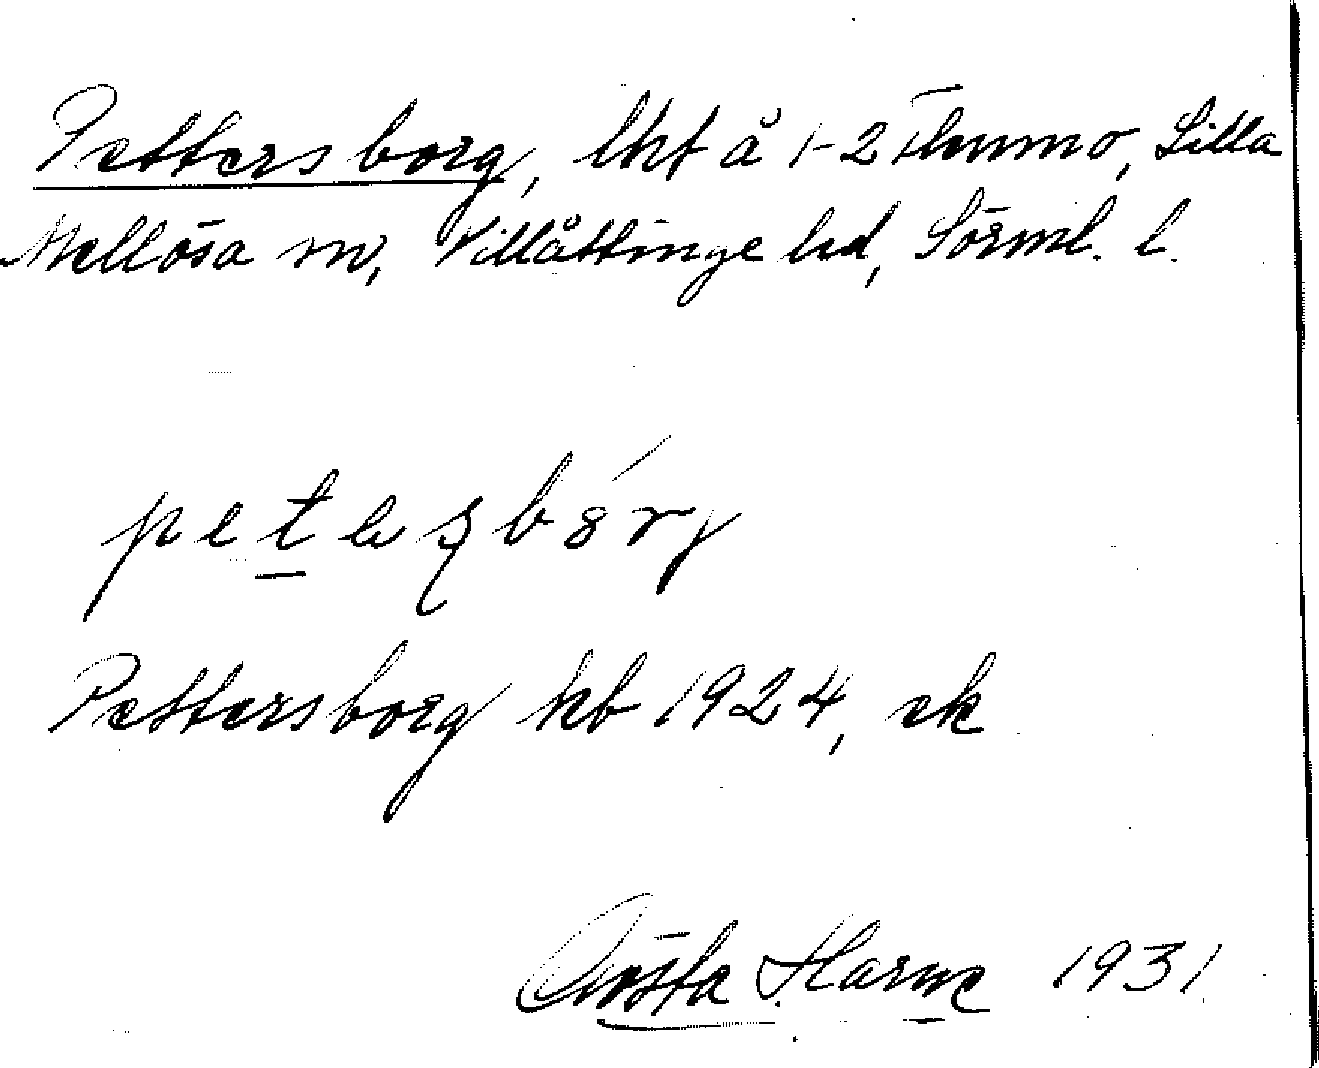 Pettersborg, lht å 1-2 Flenmo, Lilla
Mellösa sn, Villåttinge hd, Sörml. l.
petasbórg
Pettersborg kb 1924, ek
Gösta Harne 1931